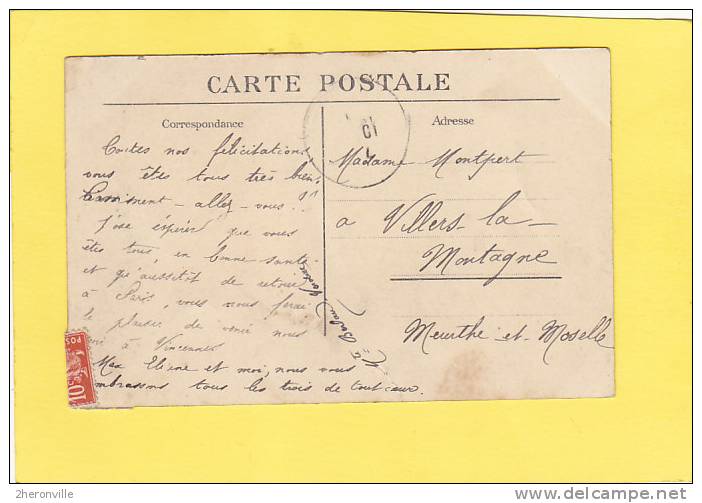 CARTE POSTALE
Correspondance
Adresse
Toutes nos félicitations,
vous êtes tous très bien.
Comment - allez - vous !!
J'ose espérer que vous
êtes tous, en bonne santé
et qu'aussitôt de retour
à Paris, vous nous ferai
le plaisir de venir nous
à Vincennes
Max Etienne et moi, nous vous
embrassons tous les trois de tout cœur.
Madame Montpert
a Villers-la-
Montagne
Meurthe et Moselle
10
10
2heronville
delcampe.net